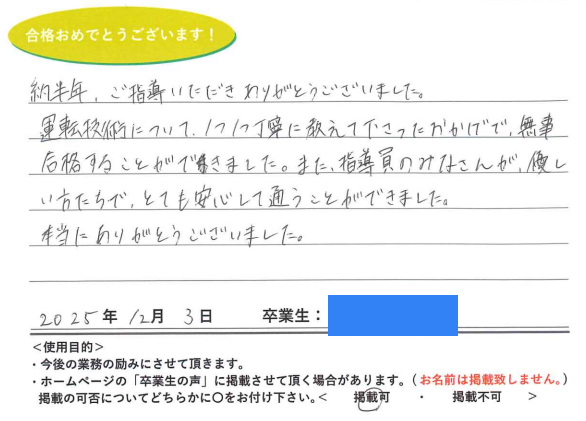 合格おめでとうございます！
約半年、ご指導いただきありがとうございました。
運転技術について、1つ1つ丁寧に教えて下さったおかげで、無事
合格することができました。また、指導員のみなさんが、優し
い方たちで、とても安心して通うことができました。
本当にありがとうございました。
2025年 12月 3日 卒業生：
＜使用目的＞
・今後の業務の励みにさせて頂きます。
・ホームページの「卒業生の声」に掲載させて頂く場合があります。（お名前は掲載致しません。）
掲載の可否についてどちらかに〇をお付け下さい。＜ 掲載可 ・ 掲載不可 ＞